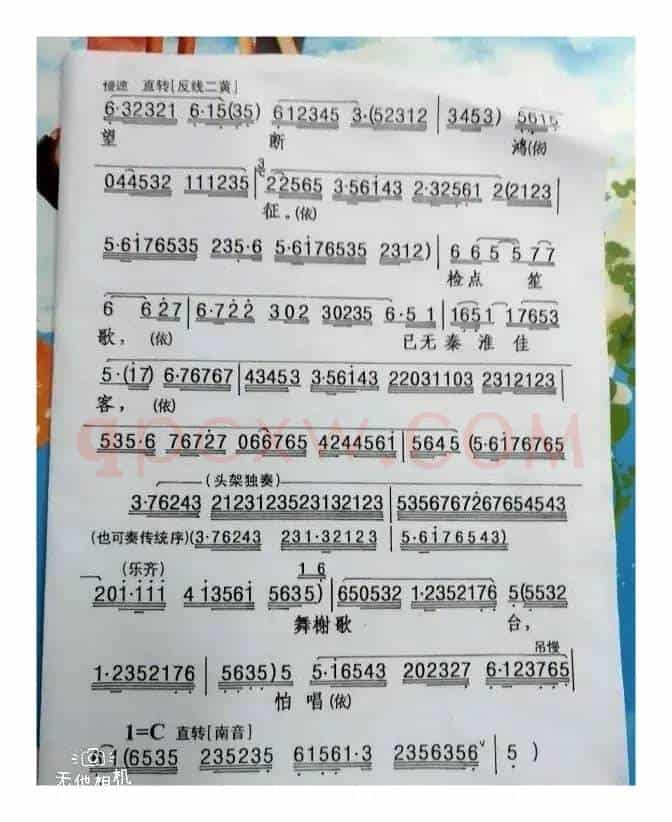 慢速 直转[反线二黄]
6·32321 6·15(35) 612345 3·(52312 | 3453) 5615
望 断 鸿(依)
044532 111235 | 3 22565 3·56i43 2·32561 2(2123 |
征。(依)
5·6i76535 235·6 5·6i76535 2312) | 6 6 5 5 7 7
检点 笙
6 6 2̇ 7 | 6·72̇2̇ 302 30235 6·5 1 | 1651 17653
歌, (依) 已无 秦 淮 佳
5·(i7) 6·76767 | 43453 3·56i43 22031103 2312123 |
客, (依)
535·6 7672̇7 066765 424456i | 5645 (5·6i76765
qpcxw.com
(头架独奏)
3·76243 2123123523132123 | 53567672̇67654543
(也可奏传统序)(3·76243 231·32123 | 5·6i76543)
(乐齐) 1 6
2̇0i·iii 4 i356i 5635) | 650532 1·2352176 5(5532
舞榭歌 台,
吊慢
1·2352176 | 5635)5 5·16543 202327 6·123765 |
怕 唱(依)
1=C 直转[南音]
1(6535 235235 61561·3 2356356 | 5 )
无他相机